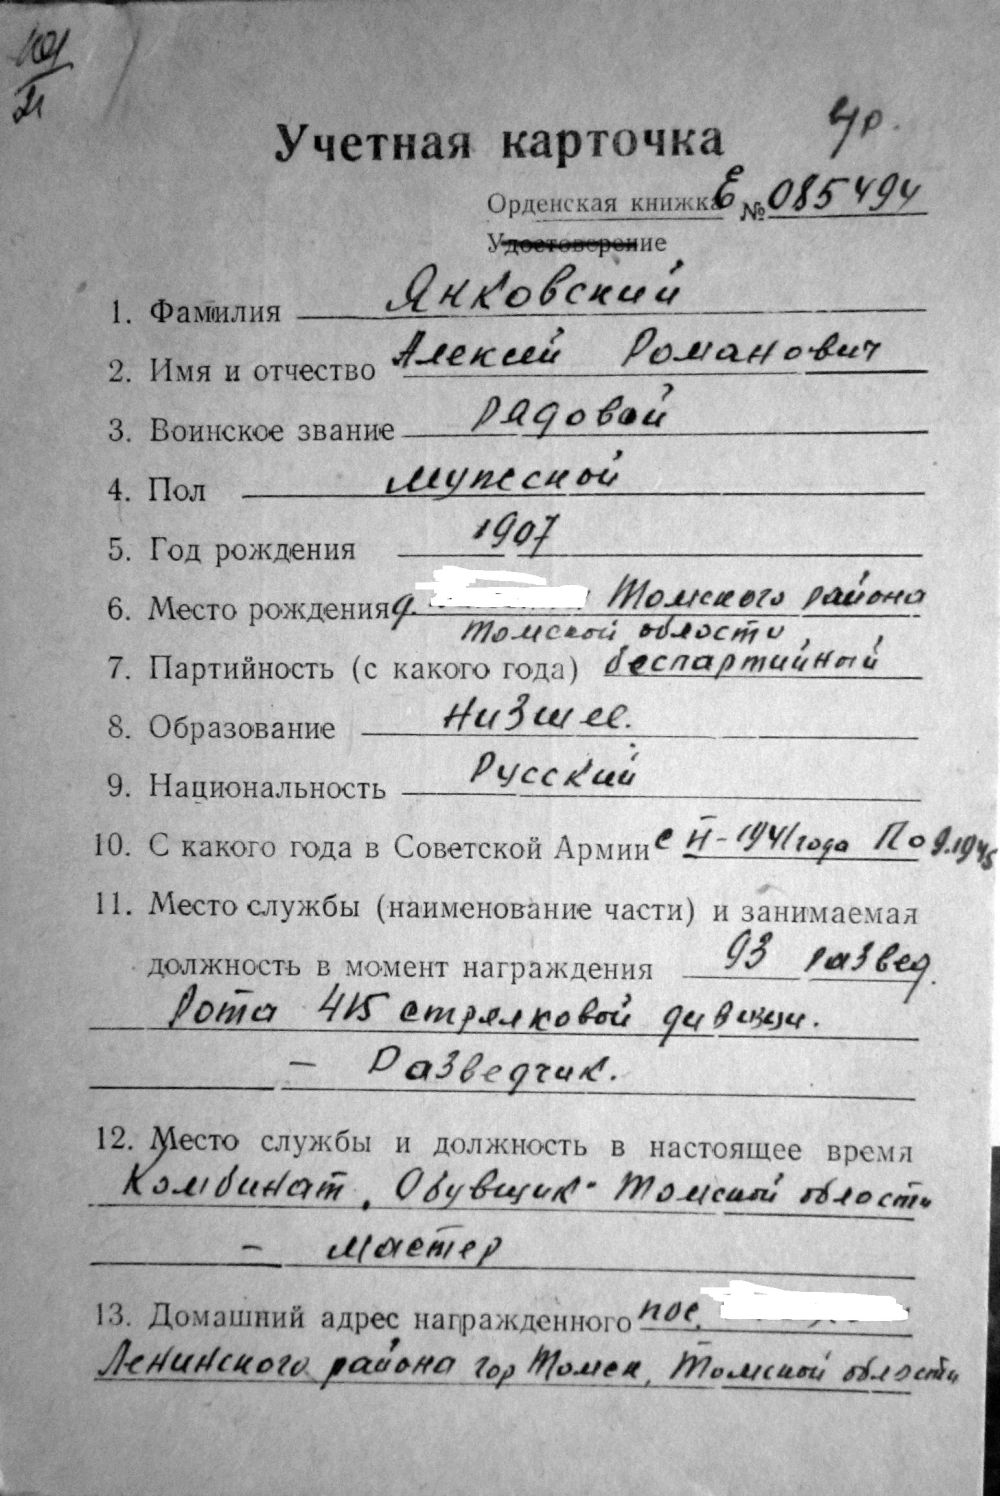 Учетная карточка
Орденская книжка Е № 085494
Удостоверение
1. Фамилия Янковский
2. Имя и отчество Алексей Романович
3. Воинское звание Рядовой
4. Пол мужской
5. Год рождения 1907
6. Место рождения д. Томского района
Томской области,
7. Партийность (с какого года) беспартийный
8. Образование Низшее.
9. Национальность Русский
10. С какого года в Советской Армии с II-1941 года По 9.1945
11. Место службы (наименование части) и занимаемая
должность в момент награждения 93 развед.
Рота 415 стрелковой дивизии.
– Разведчик.
12. Место службы и должность в настоящее время
Комбинат, Обувщик" Томской области
– мастер
13. Домашний адрес награжденного пос.
Ленинского района гор Томск, Томской области